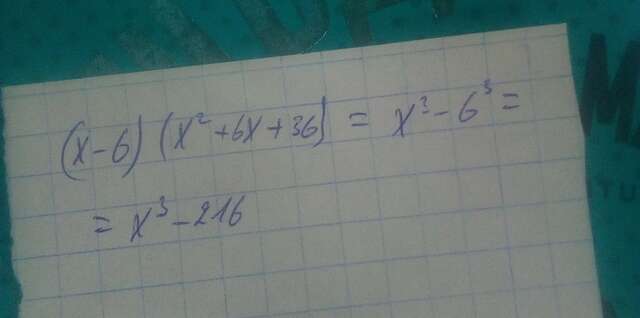 (x-6)(x²+6x+36) = x³-6³=
= x³-216